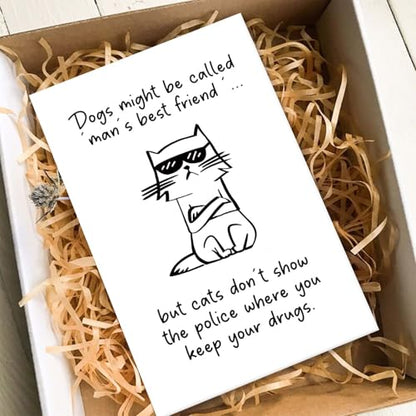 Dogs might be called
´man´s best friend´...
but cats don´t show
the police where you
keep your drugs.